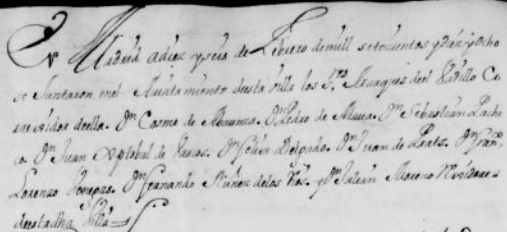 En Madrid a diez y seis de Febrero de mill setecientos y diez y ocho
se Juntaron en el Aiuntamiento desta villa los S.res Marques del Vadillo Co
rrexidor della. Dn Cosme de Abaunza. Dn Pedro de Alava. Dn Sebastian Pache
co. Dn Juan Xptobal de Dn Phelix Delgado. Dn Juan de Prats. Dn Fran.co
Lorenzo Dn Fernando Nuñez de los Rios. y Dn Julian Moreno Rexidores
desta dha Villa